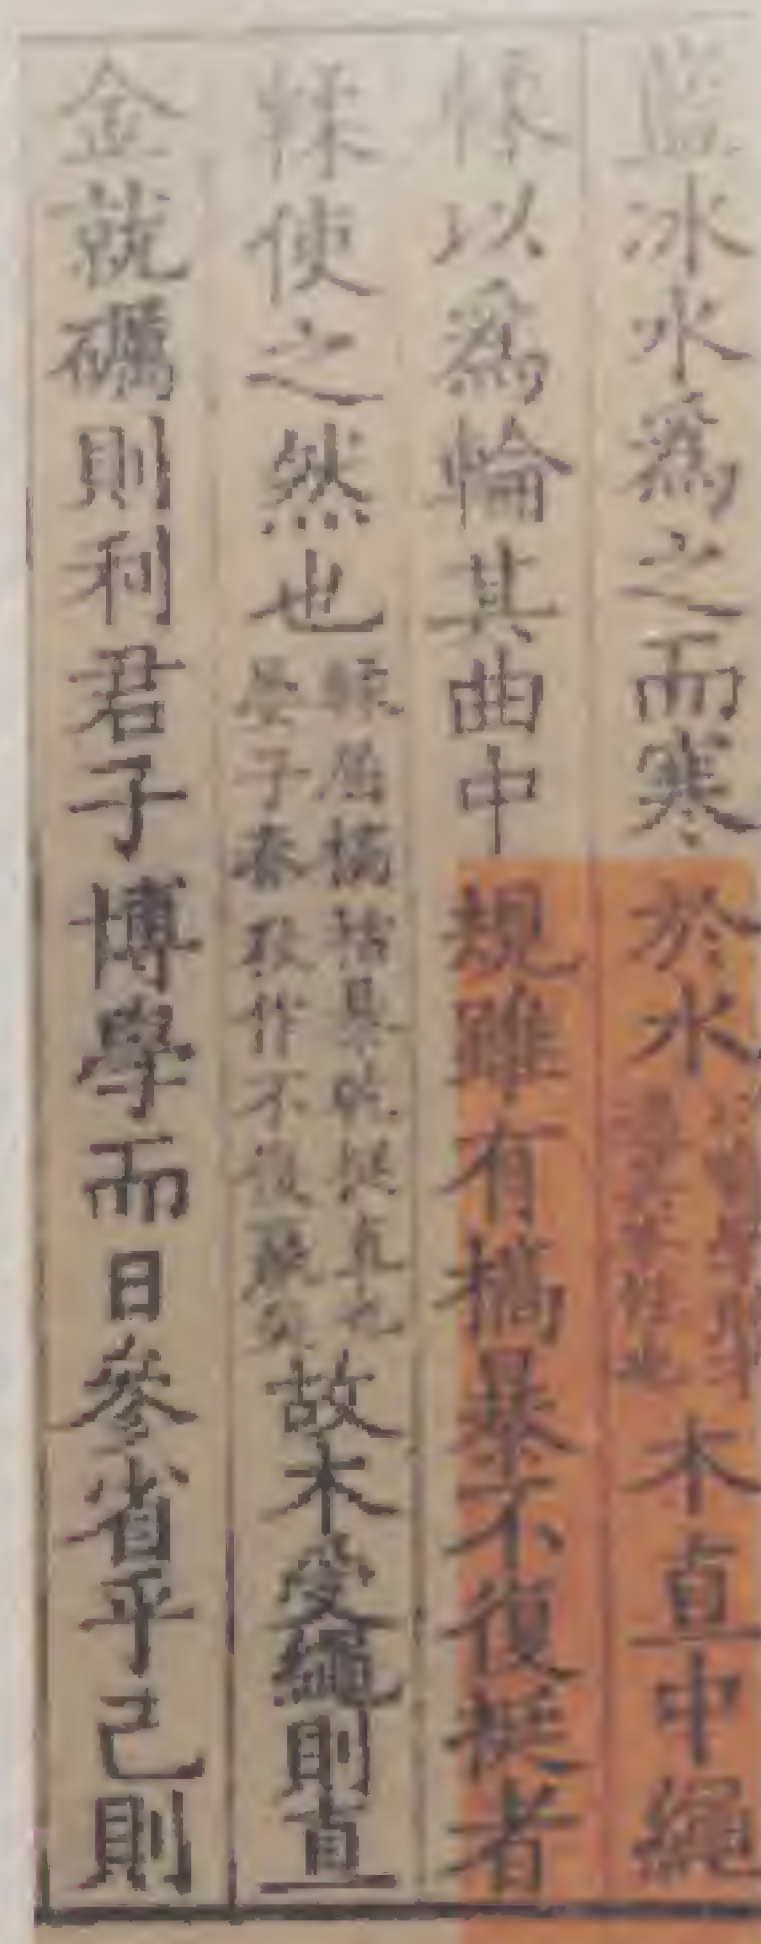 藍冰水爲之而寒於水木直中繩
輮以爲輪其曲中規雖有槁暴不復挺者
輮使之然也輮屈槁枯暴乾挺直也晏子春秋作不復贏矣故木受繩則直
金就礪則利君子博學而日參省乎己則